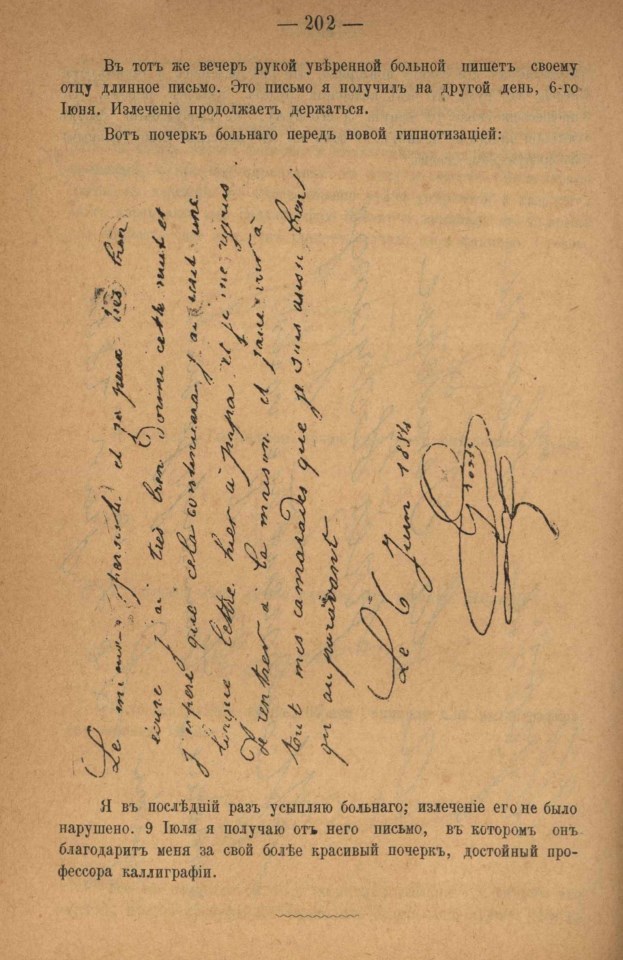 — 202 —
Въ тотъ же вечеръ рукой увѣренной больной пишетъ своему
отцу длинное письмо. Это письмо я получилъ на другой день, 6-го
Іюня. Излеченіе продолжаетъ держаться.
Вотъ почеркъ больнаго передъ новой гипнотизаціей:
Le mieux persiste et je peux très bien
écrire j ai très bien dormi cette nuit et
j espere que cela continuera j ai ecrit une
longue lettre hier à papa et je me
de rentrer à la maison et à
tout mes camarades que je suis aussi bien
qu auparavant
Le 6 Juin 1884
Я въ послѣдній разъ усыпляю больнаго; излеченіе его не было
нарушено. 9 Іюля я получаю отъ него письмо, въ которомъ онъ
благодаритъ меня за свой болѣе красивый почеркъ, достойный про-
фессора каллиграфіи.